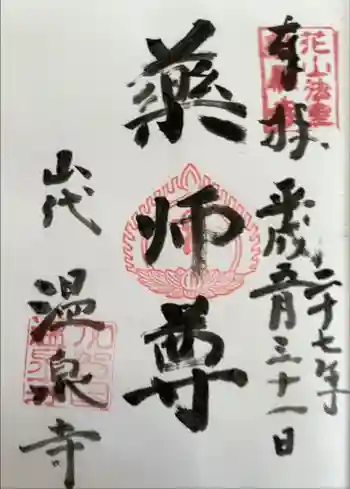 奉拝
平成二十七年
五月三十一日
薬師尊
山代
温泉寺
花山法皇